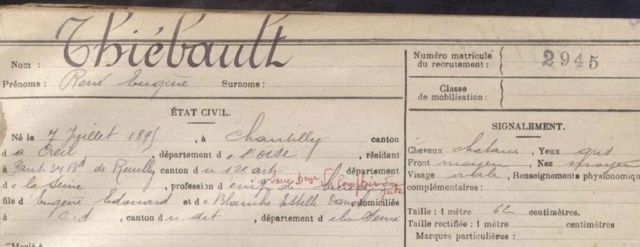 Nom : Thiébault
Prénoms : René Eugène Surnoms :
Numéro matricule du recrutement : 2945
Classe de mobilisation :
ÉTAT CIVIL.
Né le 7 Juillet 1895, à Chantilly canton
d Creil, département d l'oise, résidant
à Paris 34 Bd de Reuilly canton 12e arrt, département d
la Seine, profession d
fils d'Eugène Edouard et d Blanche domiciliés
à C.d canton d it dit, département d la Seine
Marié à
SIGNALEMENT.
Cheveux chatain Yeux gris
Front moyen Nez moyen
Visage ovale, Renseignements physionomiques
complémentaires :
Taille : 1 mètre 62 centimètres.
Taille rectifiée : 1 mètre centimètres.
Marques particulières :